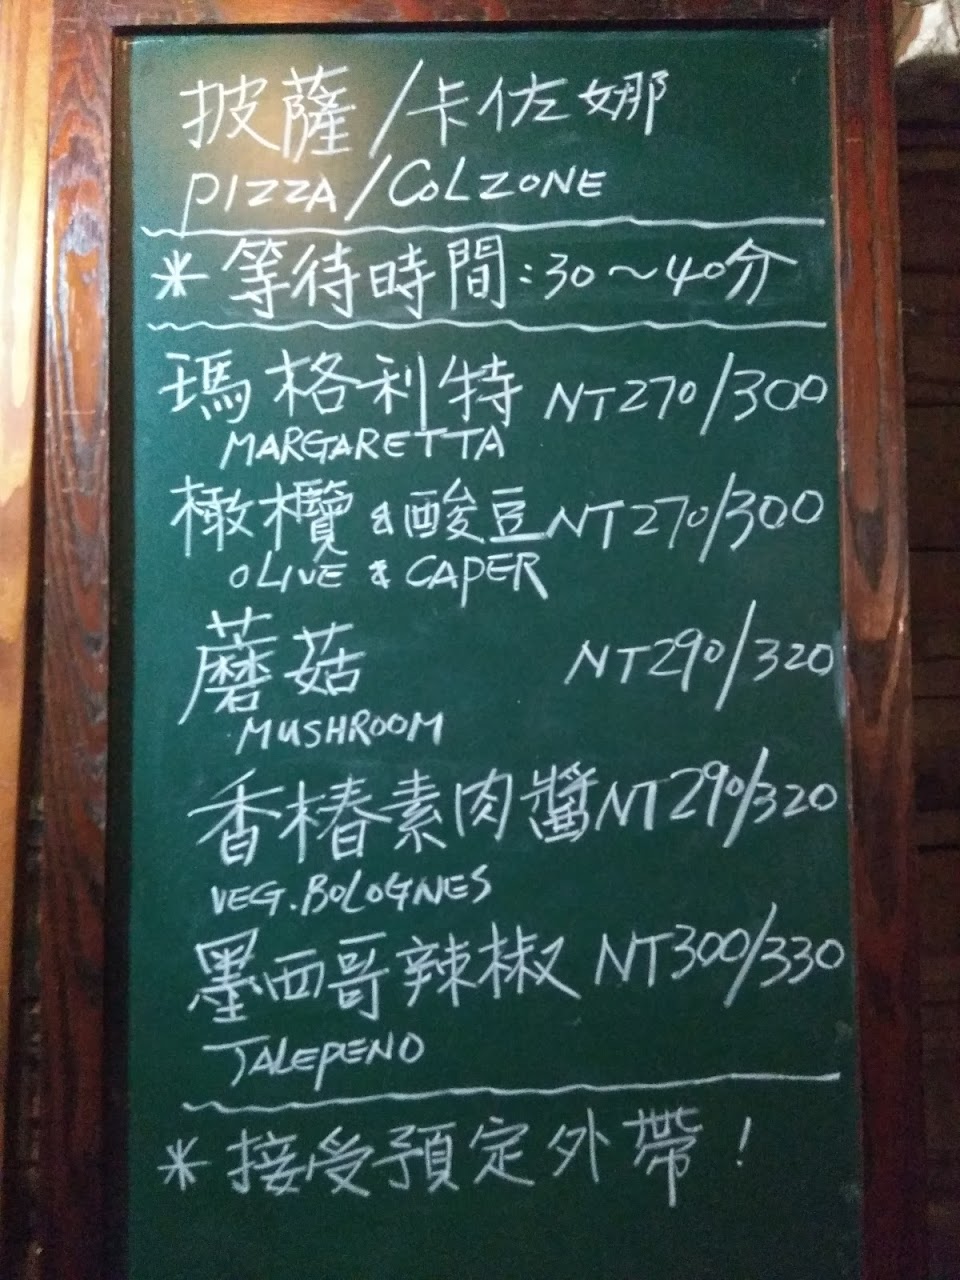 披薩/卡佐娜
PIZZA/COLZONE
*等待時間:30~40分
瑪格利特 NT270/300
MARGARETTA
橄欖&酸豆NT270/300
OLIVE & CAPER
蘑菇 NT290/320
MUSHROOM
香椿素肉醬NT290/320
VEG.BOLOGNES
墨西哥辣椒 NT300/330
JALEPENO
*接受預定外帶!